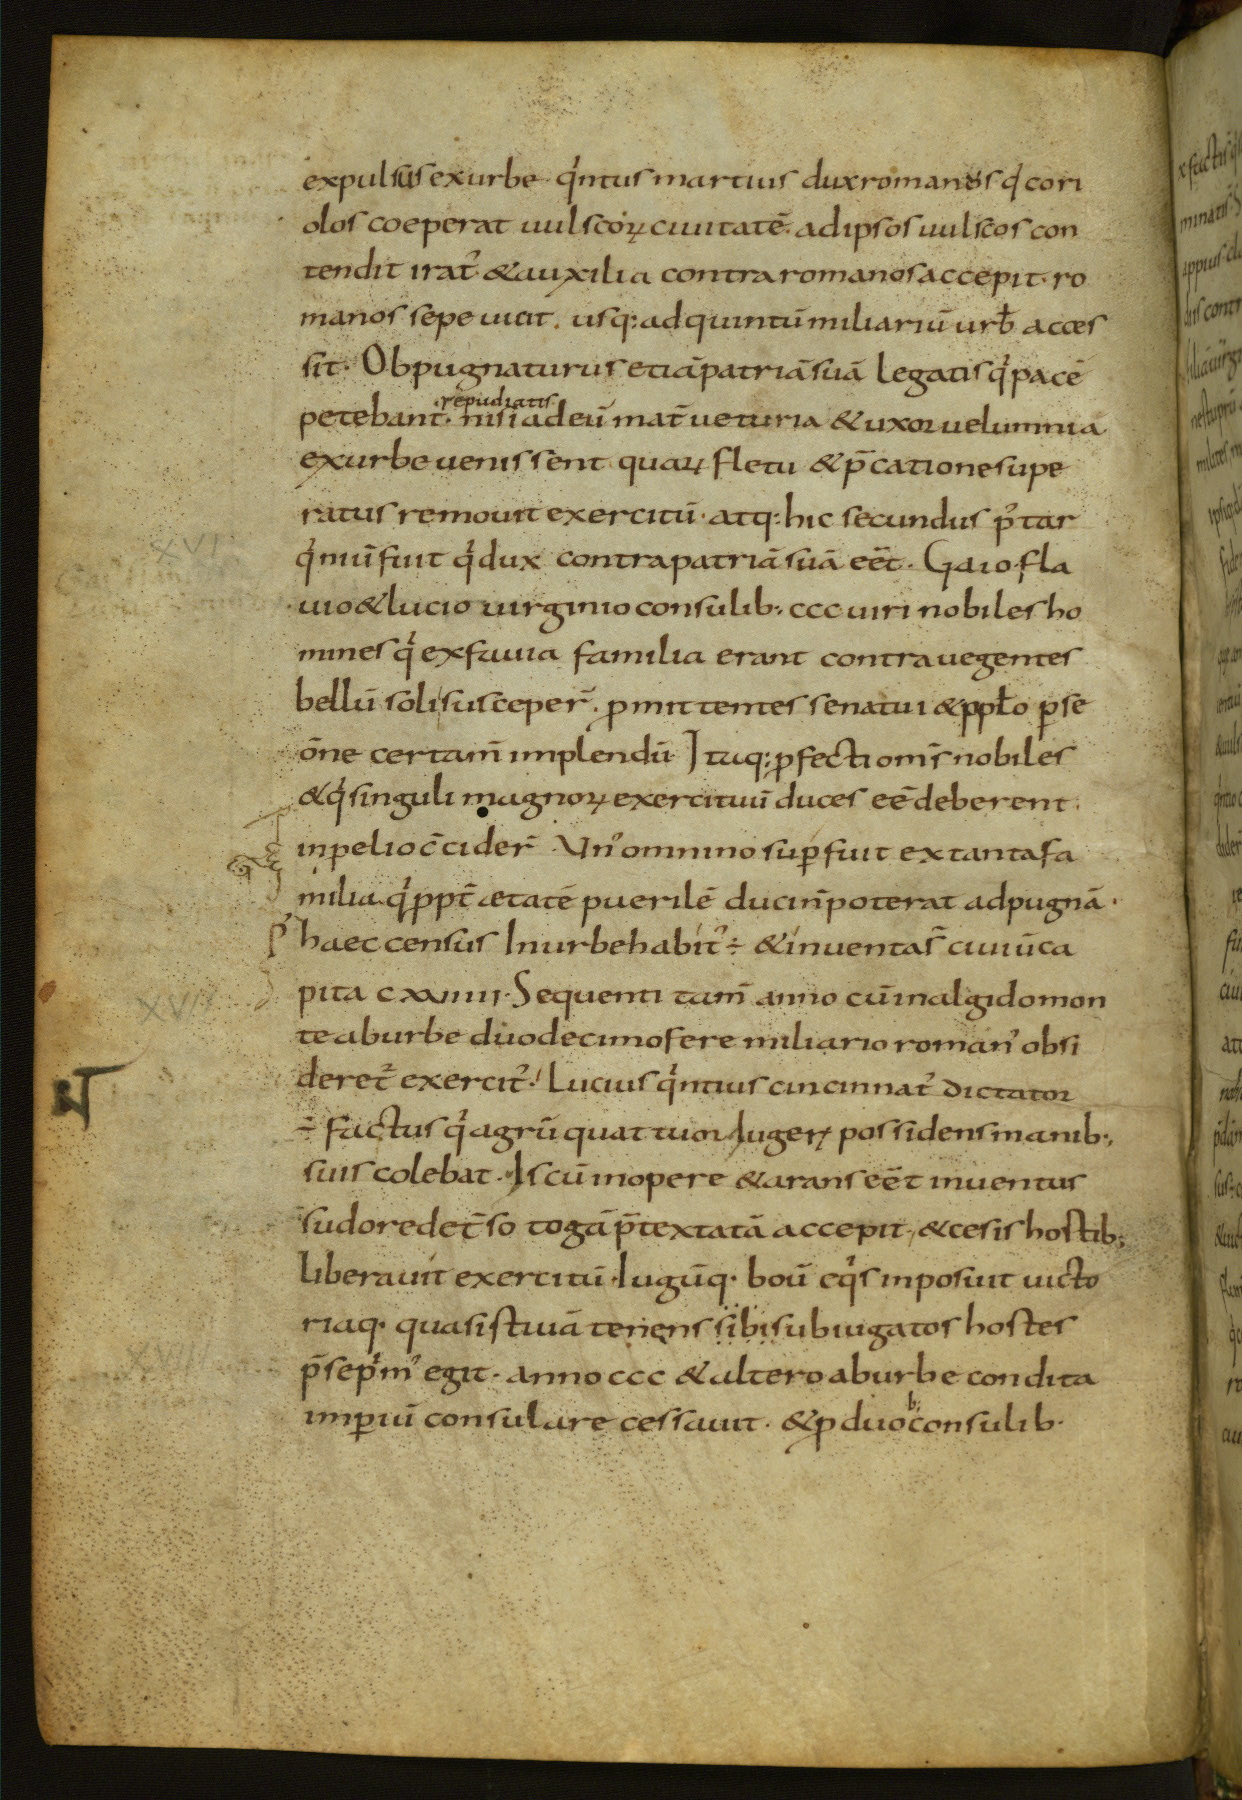 expulsus exurbe q̓ntus martius dux romanos q̓ cori
olos coeperat uulscoꝝ ciuitatē. ad ipsos uulscos con
tendit irat᾽ & auxilia contra romanos accepit. ro
manos sepe uicit. usq: ad quintū miliariū urƀ acces
sit. Obpugnaturus etiā patriā suā legatis q̓ pacē
petebant. repudiatis nisi ad eū mat̄ ueturia & uxor uelumnia
exurbe uenissent quaꝝ fletu & p̄catione supe
ratus remouit exercitū. atq: hic secundus p᾽ tar
q̓niū fuit q̓ dux contra patriā suā eēt. Gaio fla
uio & lucio uirginio consulib: ccc uiri nobiles ho
mines q̓ ex fauia familia erant contra uegentes
bellū soli susceper̄. ꝓmittentes senatui & ppło ꝑ se
ōne certam̄ implendū Itaq: ꝓfecti om̄s nobiles
& q̓ singuli magnoꝝ exercituū duces eē deberent.
in pelio c̄cider̄ Vn᾽ omnino suꝑfuit ex tanta fa
milia q̓ ꝓpt̄ ætatē puerilē duci n̄ poterat ad pugnā.
P᾽ haec census In urbe habit᾽ ÷ & inuenta s̄ ciuiū ca
pita cxviiii. Sequenti tam̄ anno cū in algido mon
te ab urbe duodecimo fere miliario roman᾽ obsi
deret᾽ exercit᾽. Lucius q̓ntius cincinnat᾽ dictator
÷ factus q̓ agrū quattuor Iugeꝝ possidens manib;
suis colebat. Is cū in opere & arans eēt inuentus
sudore det̄so togā p̄textatā accepit, & cesis hostib;
liberauit exercitū. Iugūq. boū eq̓s inposuit uicto
riaq. quasi stiuā tenens sibi subiugatos hostes
p̄ se p᾽m᾽ egit. anno ccc & altero ab urbe condita
imꝑiū consulare cessauit. & ꝓ duob; consulib.
XVI
XVII
XVIII